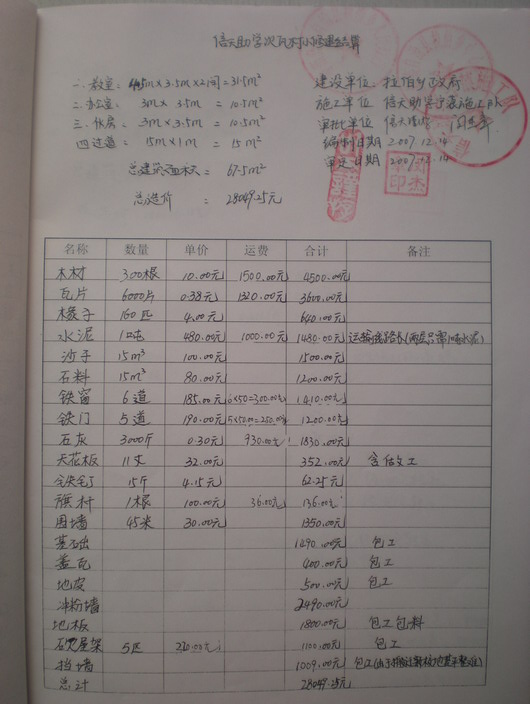 信天助学次瓦村小修建结算
一.教室: 4.5m×3.5m×2间=31.5m² 建设单位: 拉伯乡政府
二.办公室: 3m×3.5m = 10.5m² 施工单位
三.伙房: 3m×3.5m = 10.5m² 审批单位
四.过道: 15m×1m = 15m² 编制日期 2007.12.14
总建筑面积: 67.5m² 审定日期 2007.12.14
总造价: 28049.25元
名称 数量 单价 运费 合计 备注
木材 300根 10.00元 1500.00元 4500.00元
瓦片 6000片 0.38元 1320.00元 3600.00元
椽子 160匹 4.00元 640.00元
水泥 1吨 480.00元 1000.00元 1480.00元
沙子 15m³ 100.00元 1500.00元
石料 15m³ 80.00元 1200.00元
铁窗 6道 185.00元 6×50=300.00元 1410.00元
铁门 5道 190.00元 5×50=250.00元 1200.00元
石灰 3000斤 0.30元 930.00元 1830.00元
天花板 11丈 32.00元 352.00元
15斤 4.15元 62.25元
旗杆 1根 100.00元 36.00元 136.00元
围墙 45米 30.00元 1350.00元
基础 1290.00元 包工
盖瓦 400.00元 包工
地皮 500.00元 包工
冲粉墙 2490.00元
地板 1800.00元 包工包料
屋架 5匹 220.00元 1100.00元 包工
挡墙 1009.00元
总计 28049.25元